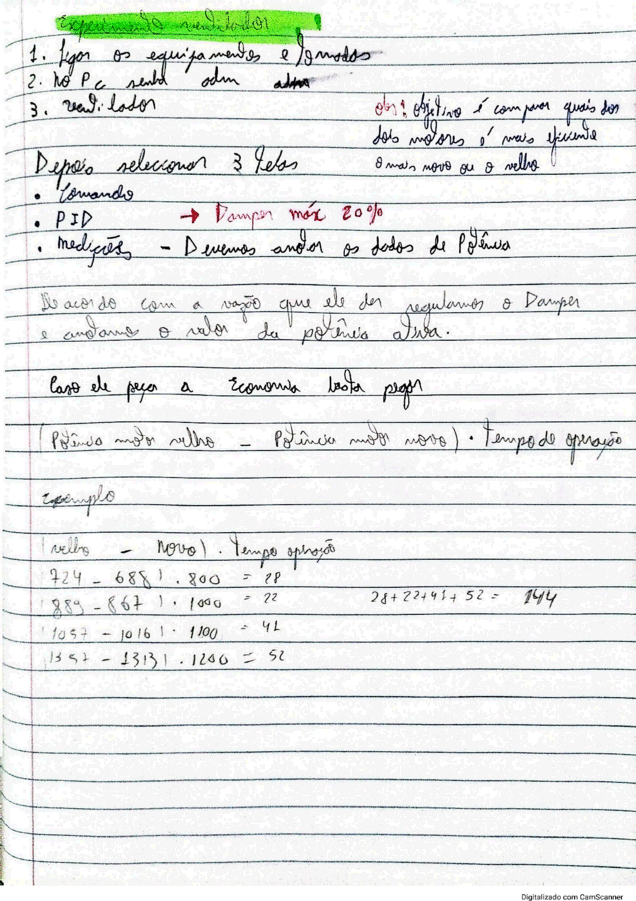 Experimento ventilador
1. Ligar os equipamentos e tomadas
2. No PC senha adm
3. ventilador
obs: objetivo é comparar quais dos
dois motores é mais eficiente
o mais novo ou o velho
Depois selecionar 3 telas
• Comando
• PID → Damper máx 20%
• medições - Devemos anotar os dados de Potência
De acordo com a vazão que ele der regulamos o Damper
e anotamos o valor da potência ativa.
Caso ele peça a Economia basta pegar
(Potência motor velho - Potência motor novo) · Tempo de operação
Exemplo
(velho - novo) · Tempo operação
724 - 688) . 800 = 28
889 - 867 ) . 1000 = 22
28+22+41+52 = 144
1057 - 1016) . 1100 = 41
1357 - 1313) . 1200 = 52
Digitalizado com CamScanner